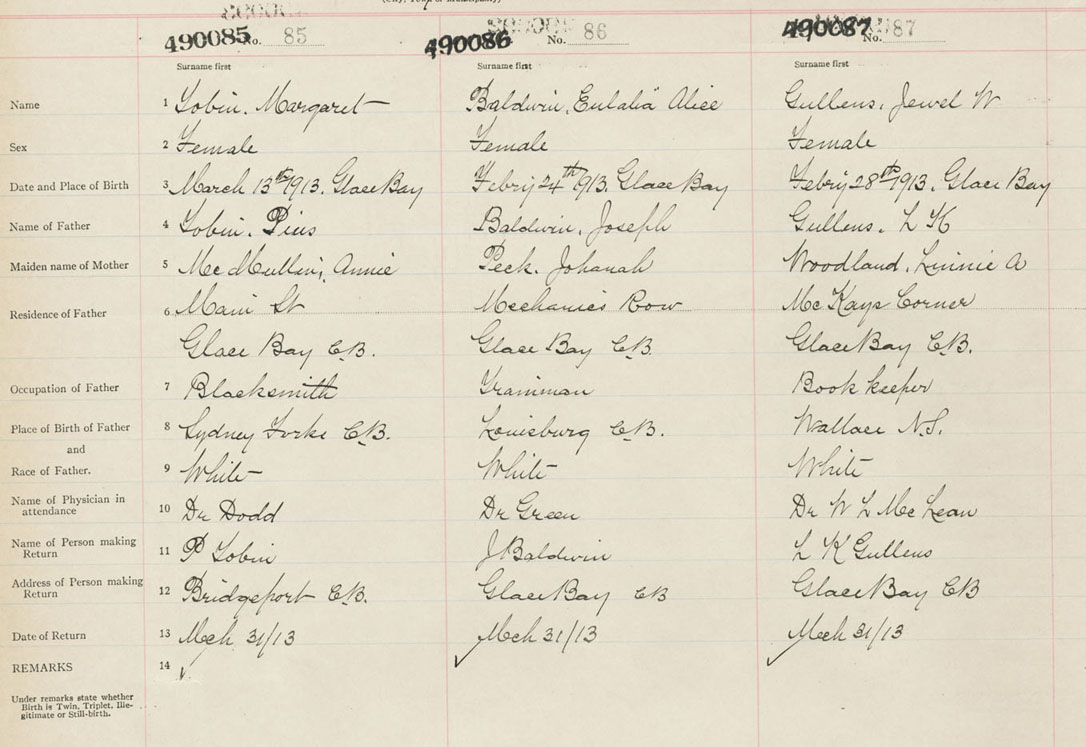 (City, Town or Municipality)
490085 No. 85 490086 No. 86 490087 No. 87
Surname first Surname first Surname first
Name 1 Tobin. Margaret Baldwin, Eulalia Alice Gullens, Jewel W
Sex 2 Female Female Female
Date and Place of Birth 3 March 13th 1913. Glace Bay Febry 24th 1913. Glace Bay Febry 28th 1913. Glace Bay
Name of Father 4 Tobin. Pius Baldwin, Joseph Gullens. L K
Maiden name of Mother 5 McMullin, Annie Peck. Johanah Woodland, Linnie A
Residence of Father 6 Main St Mechanics Row McKays Corner
Glace Bay C.B. Glace Bay C.B. Glace Bay C.B.
Occupation of Father 7 Blacksmith Trainman Book keeper
Place of Birth of Father 8 Sydney Forks C.B. Louisburg C.B. Wallace N.S.
and
Race of Father. 9 White White White
Name of Physician in
attendance 10 Dr Dodd Dr Green Dr W L McLean
Name of Person making
Return 11 P Tobin J Baldwin L K Gullens
Address of Person making
Return 12 Bridgeport C.B. Glace Bay CB Glace Bay CB
Date of Return 13 Mch 31/13 Mch 31/13 Mch 31/13
REMARKS 14
Under remarks state whether
Birth is Twin, Triplet, Ille-
gitimate or Still-birth.